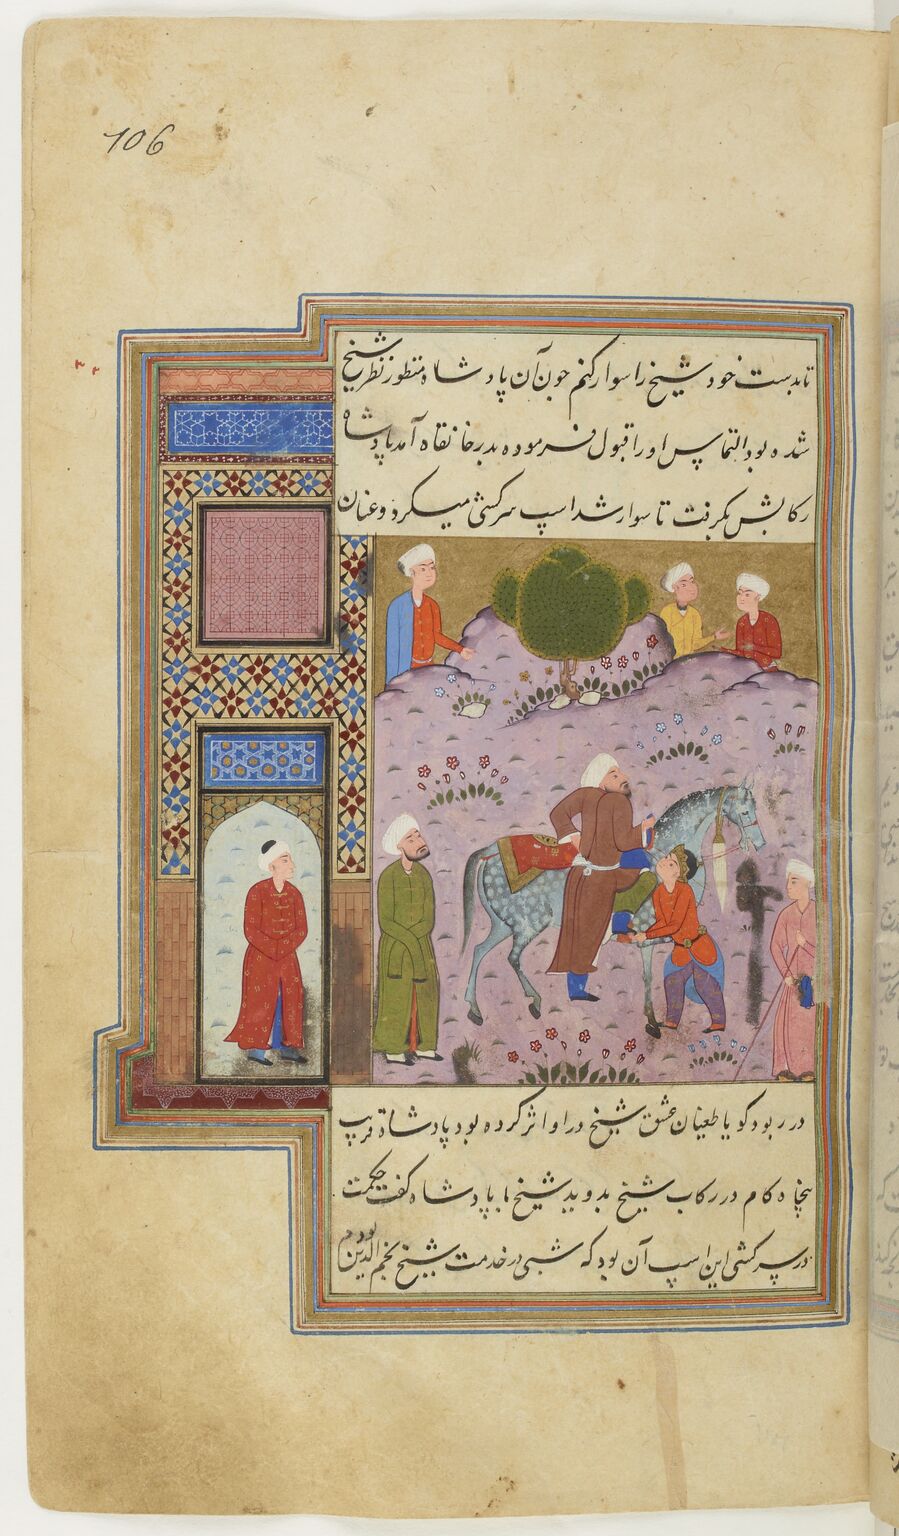 106
تا بدست خود شیخ را سوار کنم چون آن پادشاه منظور نظر شیخ
شده بود التماس او را قبول فرموده بدر خانقاه آمد پادشاه
رکابش بگرفت تا سوار شد اسپ سرکشی میکرد و عنان
در ربود کویا طغیان عشق شیخ در او اثر کرده بود پادشاه قریب
پنجاه کام در رکاب شیخ بدوید شیخ با پادشاه کفت حکمت
در سرکشی این اسپ آن بود که شبی در خدمت شیخ نجم الدین بودم